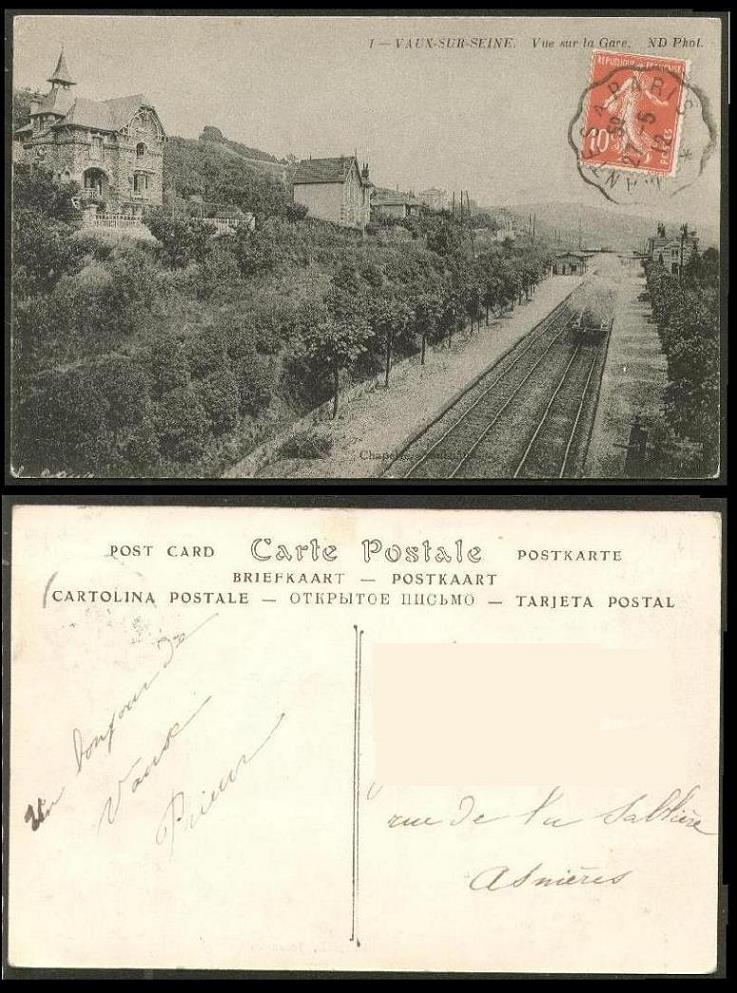 1 — VAUX-SUR-SEINE. Vue sur la Gare. ND Phot.
REPUBLIQUE FRANÇAISE
10
POSTES
A PARIS
27 - 5
12
POST CARD Carte Postale POSTKARTE
BRIEFKAART — POSTKAART
CARTOLINA POSTALE — ОТКРЫТОЕ ПИСЬМО — TARJETA POSTAL
Un bonjour de
Vaux
Prieur
rue de la Sablière
Asnières